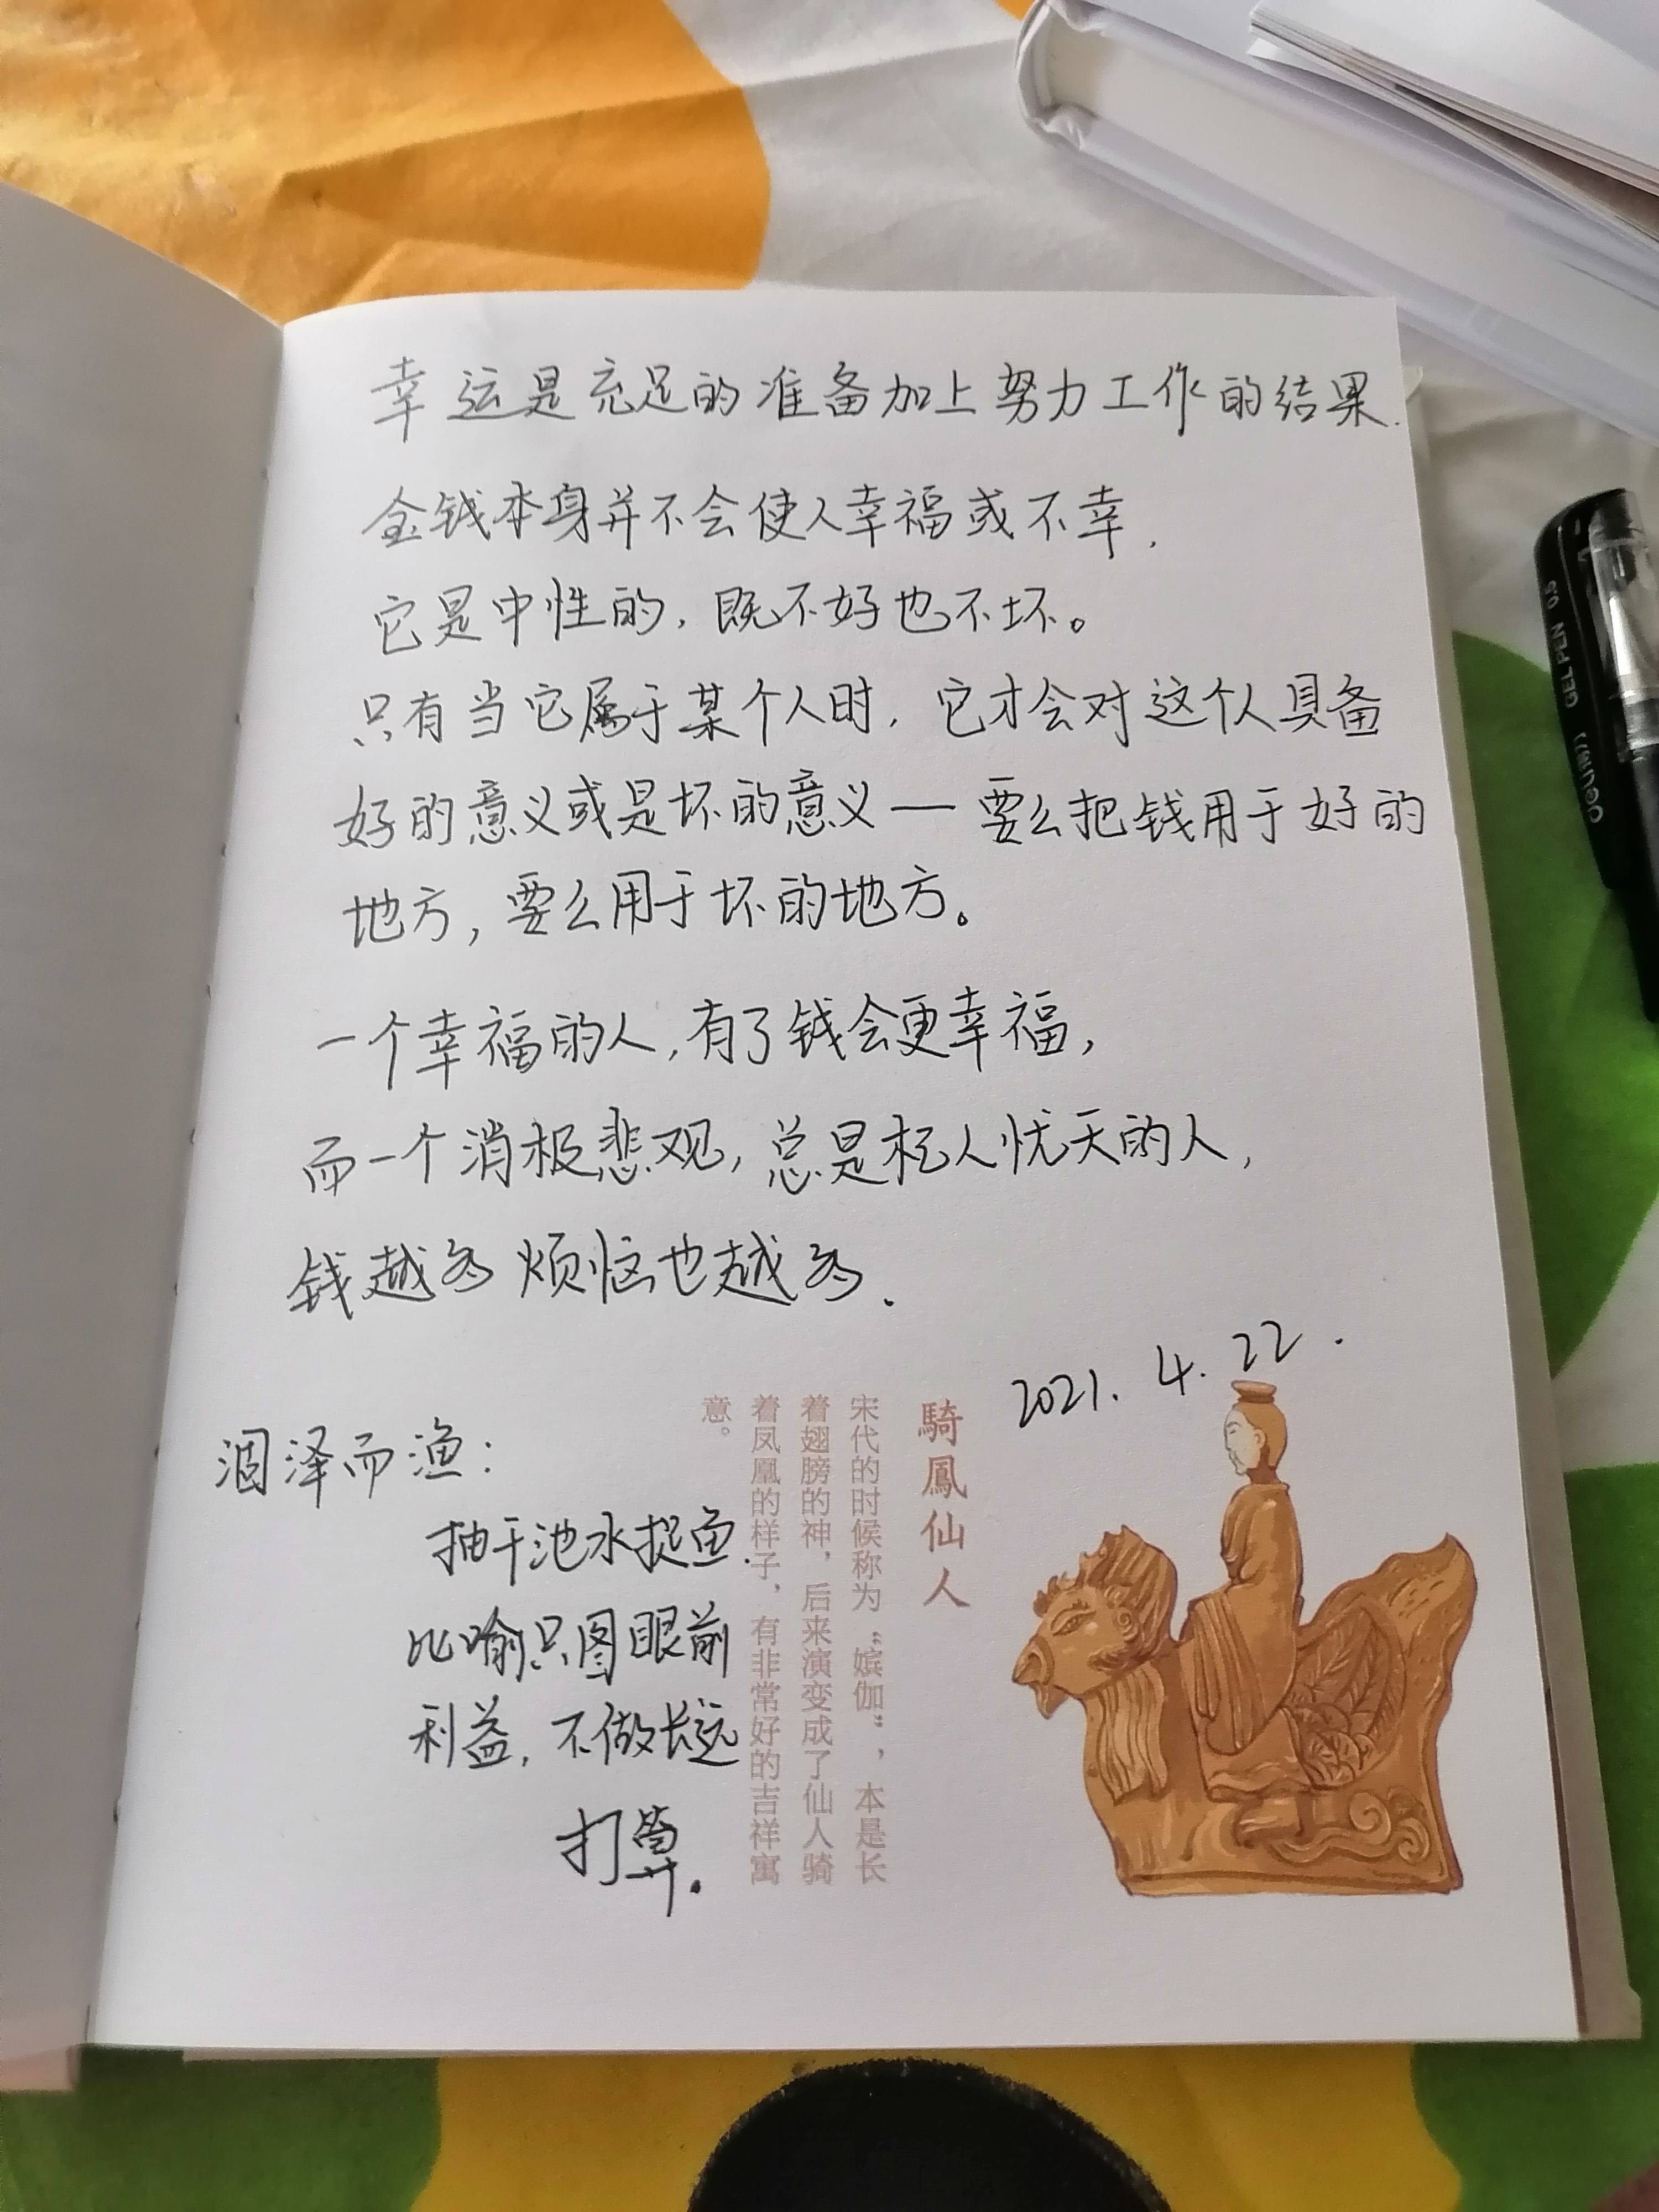 幸运是充足的准备加上努力工作的结果.
金钱本身并不会使人幸福或不幸.
它是中性的，既不好也不坏。
只有当它属于某个人时，它才会对这个人具备
好的意义或是坏的意义—要么把钱用于好的
地方，要么用于坏的地方。
一个幸福的人，有了钱会更幸福，
而一个消极悲观，总是杞人忧天的人，
钱越多 烦恼也越多.
2021.4.22.
涸泽而渔：
抽干池水捉鱼.
比喻只图眼前
利益，不做长远
打算.
騎鳳仙人
宋代的时候称为“嫔伽”，本是长
着翅膀的神，后来演变成了仙人骑
着凤凰的样子，有非常好的吉祥寓
意。
GEL PEN 0.5
deli